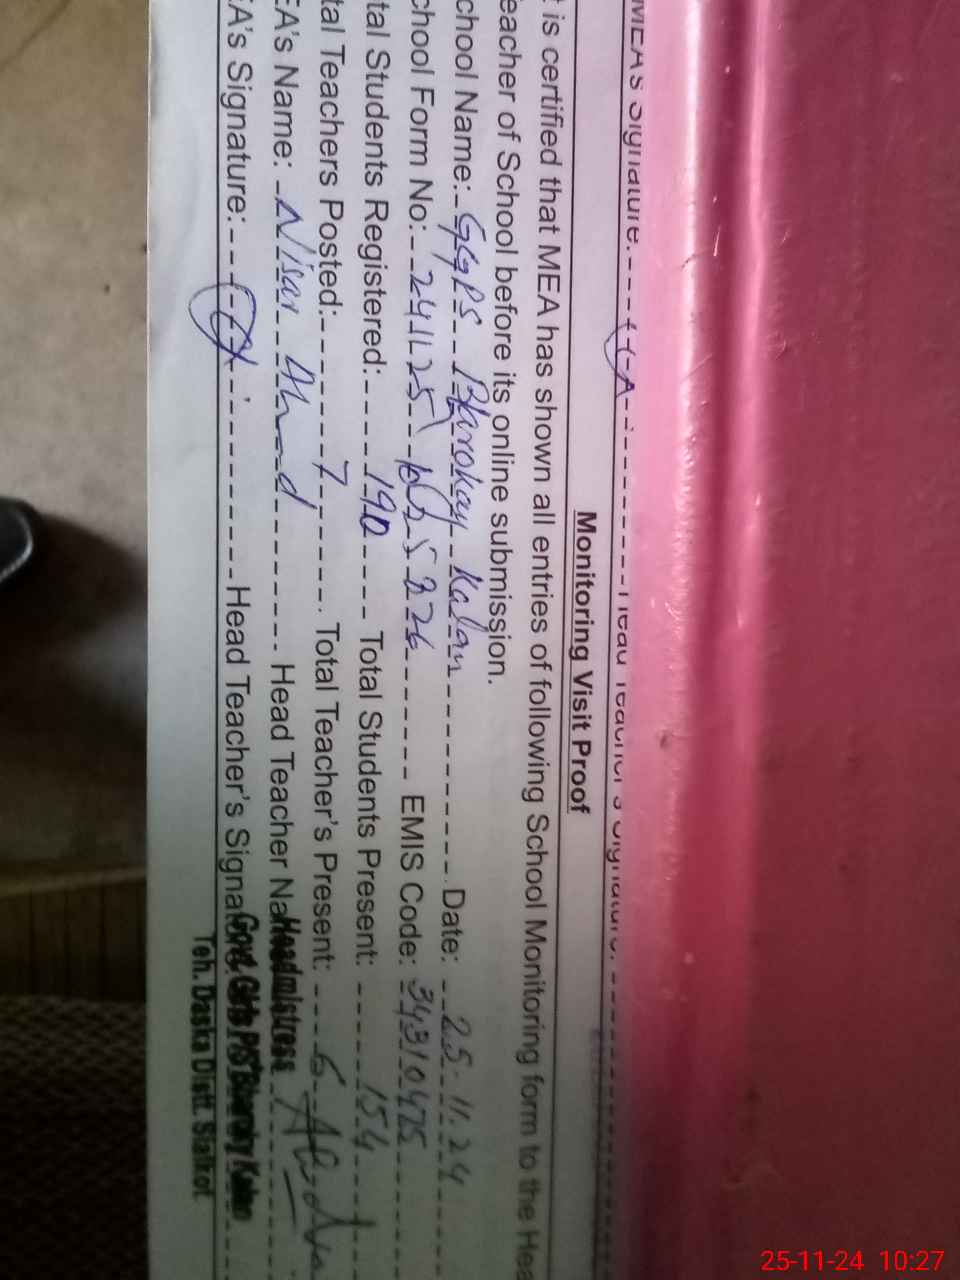 MEA's Signature: Head Teacher's Signature:
Monitoring Visit Proof
t is certified that MEA has shown all entries of following School Monitoring form to the Hea
eacher of School before its online submission.
chool Name: GGPS Bharokay Kalan Date: 25.11.24
chool Form No: 241125 EMIS Code: 34310475
tal Students Registered: 190 Total Students Present: 154
tal Teachers Posted: 7 Total Teacher's Present: 6
EA's Name: Nisar Ahmad Head Teacher Na
Headmistress
EA's Signature: Head Teacher's Signa
Govt. Girls P/S Bharoky Kalan
Teh. Daska Distt. Sialkot
25-11-24 10:27